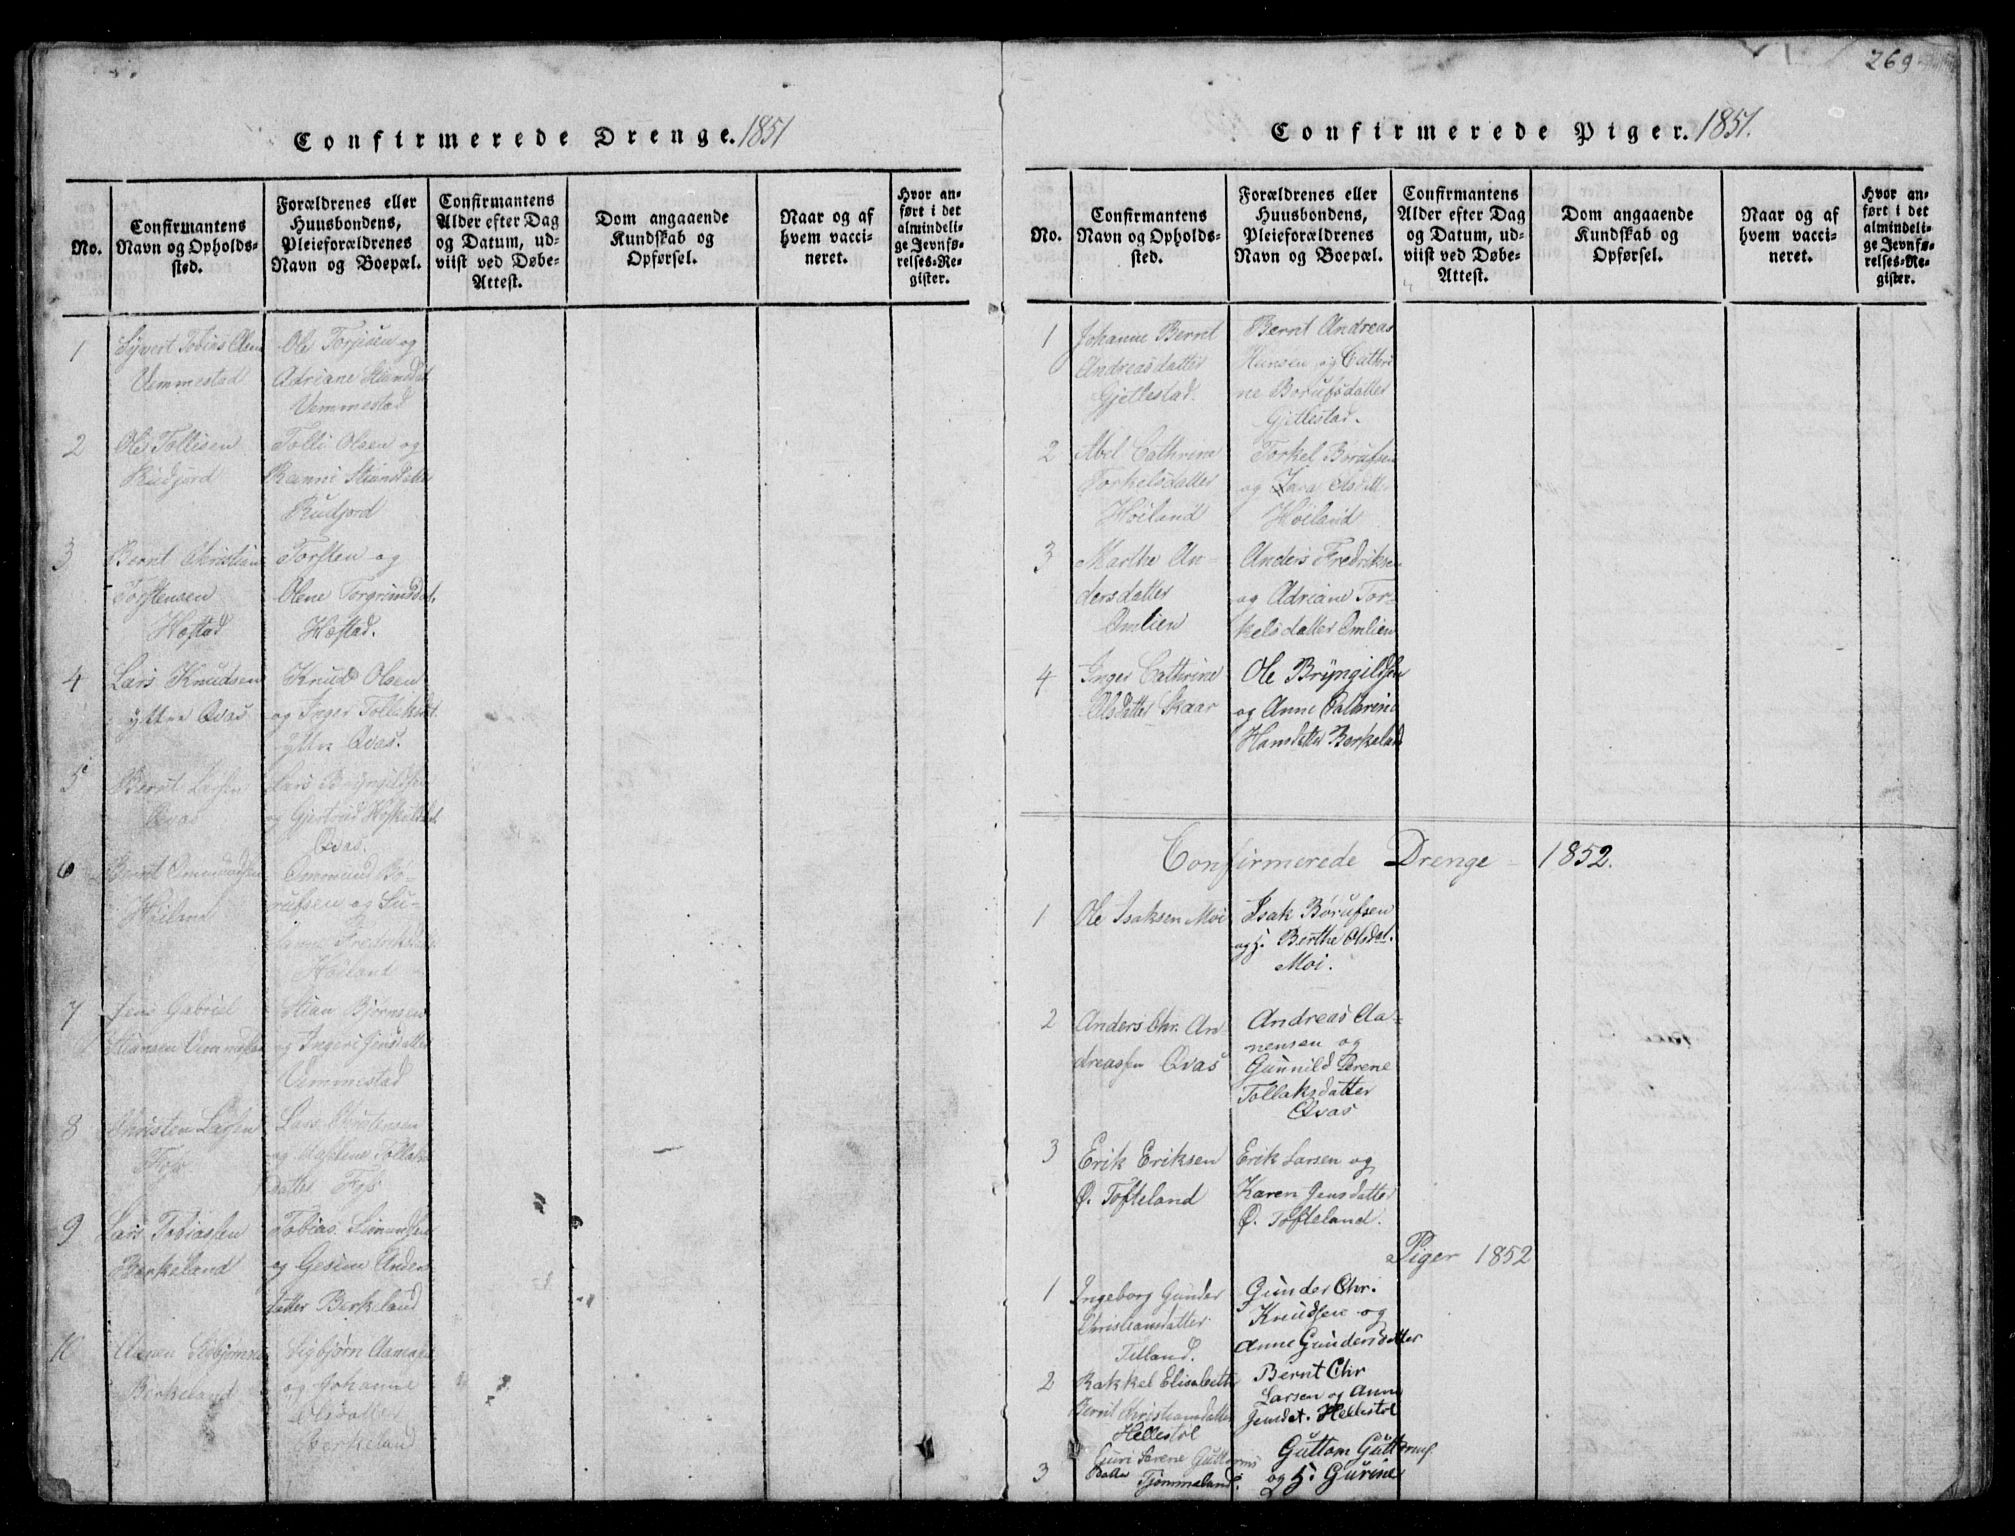 269
Confirmerede Drenge. 1851
No.
Confirmantens
Navn og Opholds-
sted.
Forældrenes eller
Huusbondens,
Pleieforældrenes
Navn og Boepæl.
Confirmantens
Alder efter Dag
og Datum, ud-
viist ved Døbe-
Attest.
Dom angaaende
Kundskab og
Opførsel.
Naar og af
hvem vacci-
neret.
Hvor an-
ført i det
almindeli-
ge Jevnfø-
relses-Re-
gister.
1
Syvert Tobias Olsen
Vemmestad
Ole Torjusen og
Adriane
Vemmestad
2
Ole Tollisen
Rudjord
Tolli Olsen og
Ranni Stiansdatter
Rudjord
3
Bernt Christian
Torstensen
Hæstad
Torsten og
Olene Torgrimsdat.
Hæstad.
4
Lars Knudsen
yttre Qvas
Knud Olsen
og Inger
yttre Qvas.
5
Bernt Larsen
Qvas
Lars Bryngildsen
og Gjertrud
Qvas.
6
Bernt Ommundsen
Høiland
Ommund Bø-
rufsen og Su-
sanne
Høiland
7
Jens Gabriel
Stiansen
Stian Bjørnsen
og Ingeri Jensdatter
Vemmestad
8
Christen Larsen
Foss
Lars Christensen
og
datter Foss
9
Lars Tobiassen
Birkeland
Tobias Simonsen
og Gesine
datter Birkeland
10
Aanen Sigbjørnsen
Birkeland
Sigbjørn Aanensen
og Johanne
Olsdatter
Birkeland
Confirmerede Piger. 1851.
No.
Confirmantens
Navn og Opholds-
sted.
Forældrenes eller
Huusbondens,
Pleieforældrenes
Navn og Boepæl.
Confirmantens
Alder efter Dag
og Datum, ud-
viist ved Døbe-
Attest.
Dom angaaende
Kundskab og
Opførsel.
Naar og af
hvem vacci-
neret.
Hvor an-
ført i det
almindeli-
ge Jevnfø-
relses-Re-
gister.
1
Johanne Bernt
Andreasdatter
Gjellestad.
Bernt Andreas
Hansen og Cathri
ne Børufsdatter
Gjellestad.
2
Abel Cathrine
Torkelsdatter
Høiland
Torkel Børufsen
og
Høiland
3
Marthe An-
dersdatter
Omlien
Anders Fredriksen
og Adriane Tor-
kelsdatter Omlien
4
Inger Cathrine
Olsdatter Skaar
Ole Bryngildsen
og Anne Cathrine
Hansdatter Berkeland
Confirmerede Drenge - 1852.
1
Ole Isaksen Moi
Isak Børufsen
og h. Berthe Olsdat.
Moi.
2
Anders Chr. An
dreassen Qvas
Andreas Aa-
nensen og
Gunnild Serene
Tollaksdatter
Qvas
3
Erik Eriksen
Ø. Tofteland
Erik Larsen og
Karen Jensdatter
Ø. Tofteland.
Piger 1852
1
Ingeborg Gunder
Christiansdatter
Tilland.
Gunder Chr.
Knudsen og
Anne Gundersdatter
2
Rakkel Elisabeth
Bernt Christiansdatter
Hellestøl
Bernt Chr
Larsen og Anne
Jensdat. Hellestøl
3
Guri Serene Guttorms
datter Tjømmeland.
Guttom Guttorms.
og h. Gurine